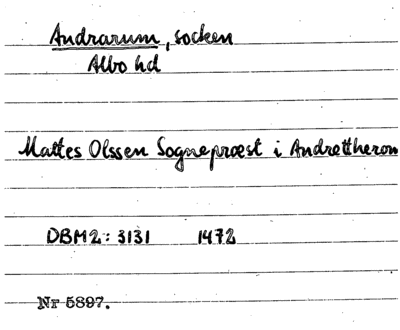 Andrarum, socken
Albo hd
Mattes Olssen Sognepræst i Andrettherom
DBM2: 3131 1472
Nr 5897.